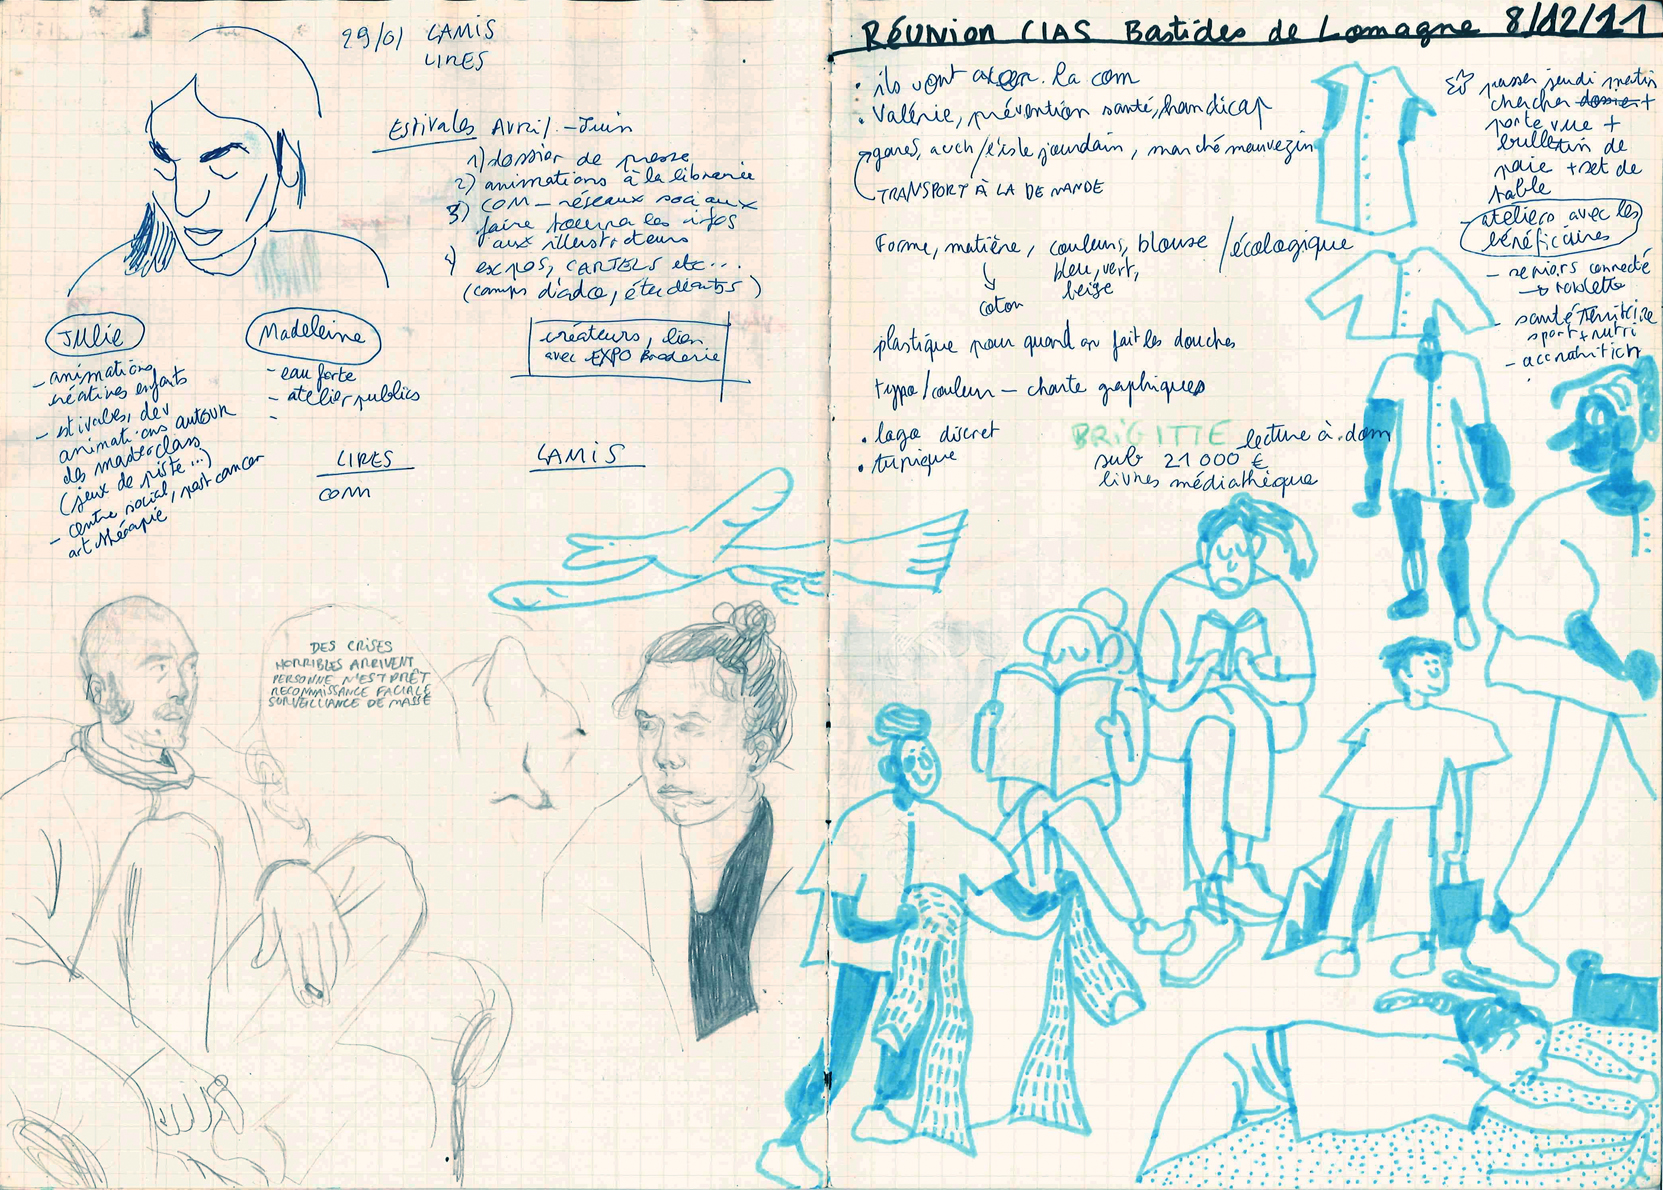 29/01 LAMIS
LIRES
Estivales Avril - Juin
1) dossier de presse
2) animations à la librairie
3) COM - réseaux sociaux
faire tourner les infos
aux illustrateurs
4) expos, CARTELS etc...
(camps d'ados, étudiants)
JULIE
- animations
créatives enfants
- estivales, dev
animations autour
des masterclass
(jeux de piste...)
- centre social, post cancer
art thérapie
Madeleine
- eau forte
- atelier publics
-
créateurs, lien
avec EXPO Broderie
LIRES
COM
LAMIS
DES CRISES
HORRIBLES ARRIVENT
PERSONNE N'EST PRÊT
RECONNAISSANCE FACIALE
SURVEILLANCE DE MASSE
RÉUNION CIAS Bastides de Lomagne 8/12/21
• ils vont axer la com
• Valérie, prévention santé, handicap
gares, auch/l'isle jourdain, marché mauvezin
TRANSPORT À LA DEMANDE
Forme, matière, couleurs, blouse / écologique
bleu, vert,
beige
coton
plastique pour quand on fait les douches
typo/couleur - charte graphiques
• logo discret
• tunique
BRIGITTE lecture à dom
sub 21 000 €
livres médiathèque
passer jeudi matin
chercher dossier +
porte vue +
bulletin de
paie + set de
table
- ateliers avec les
bénéficiaires
- seniors connecté
→ tablette
- santé, territoire
sport + nutri